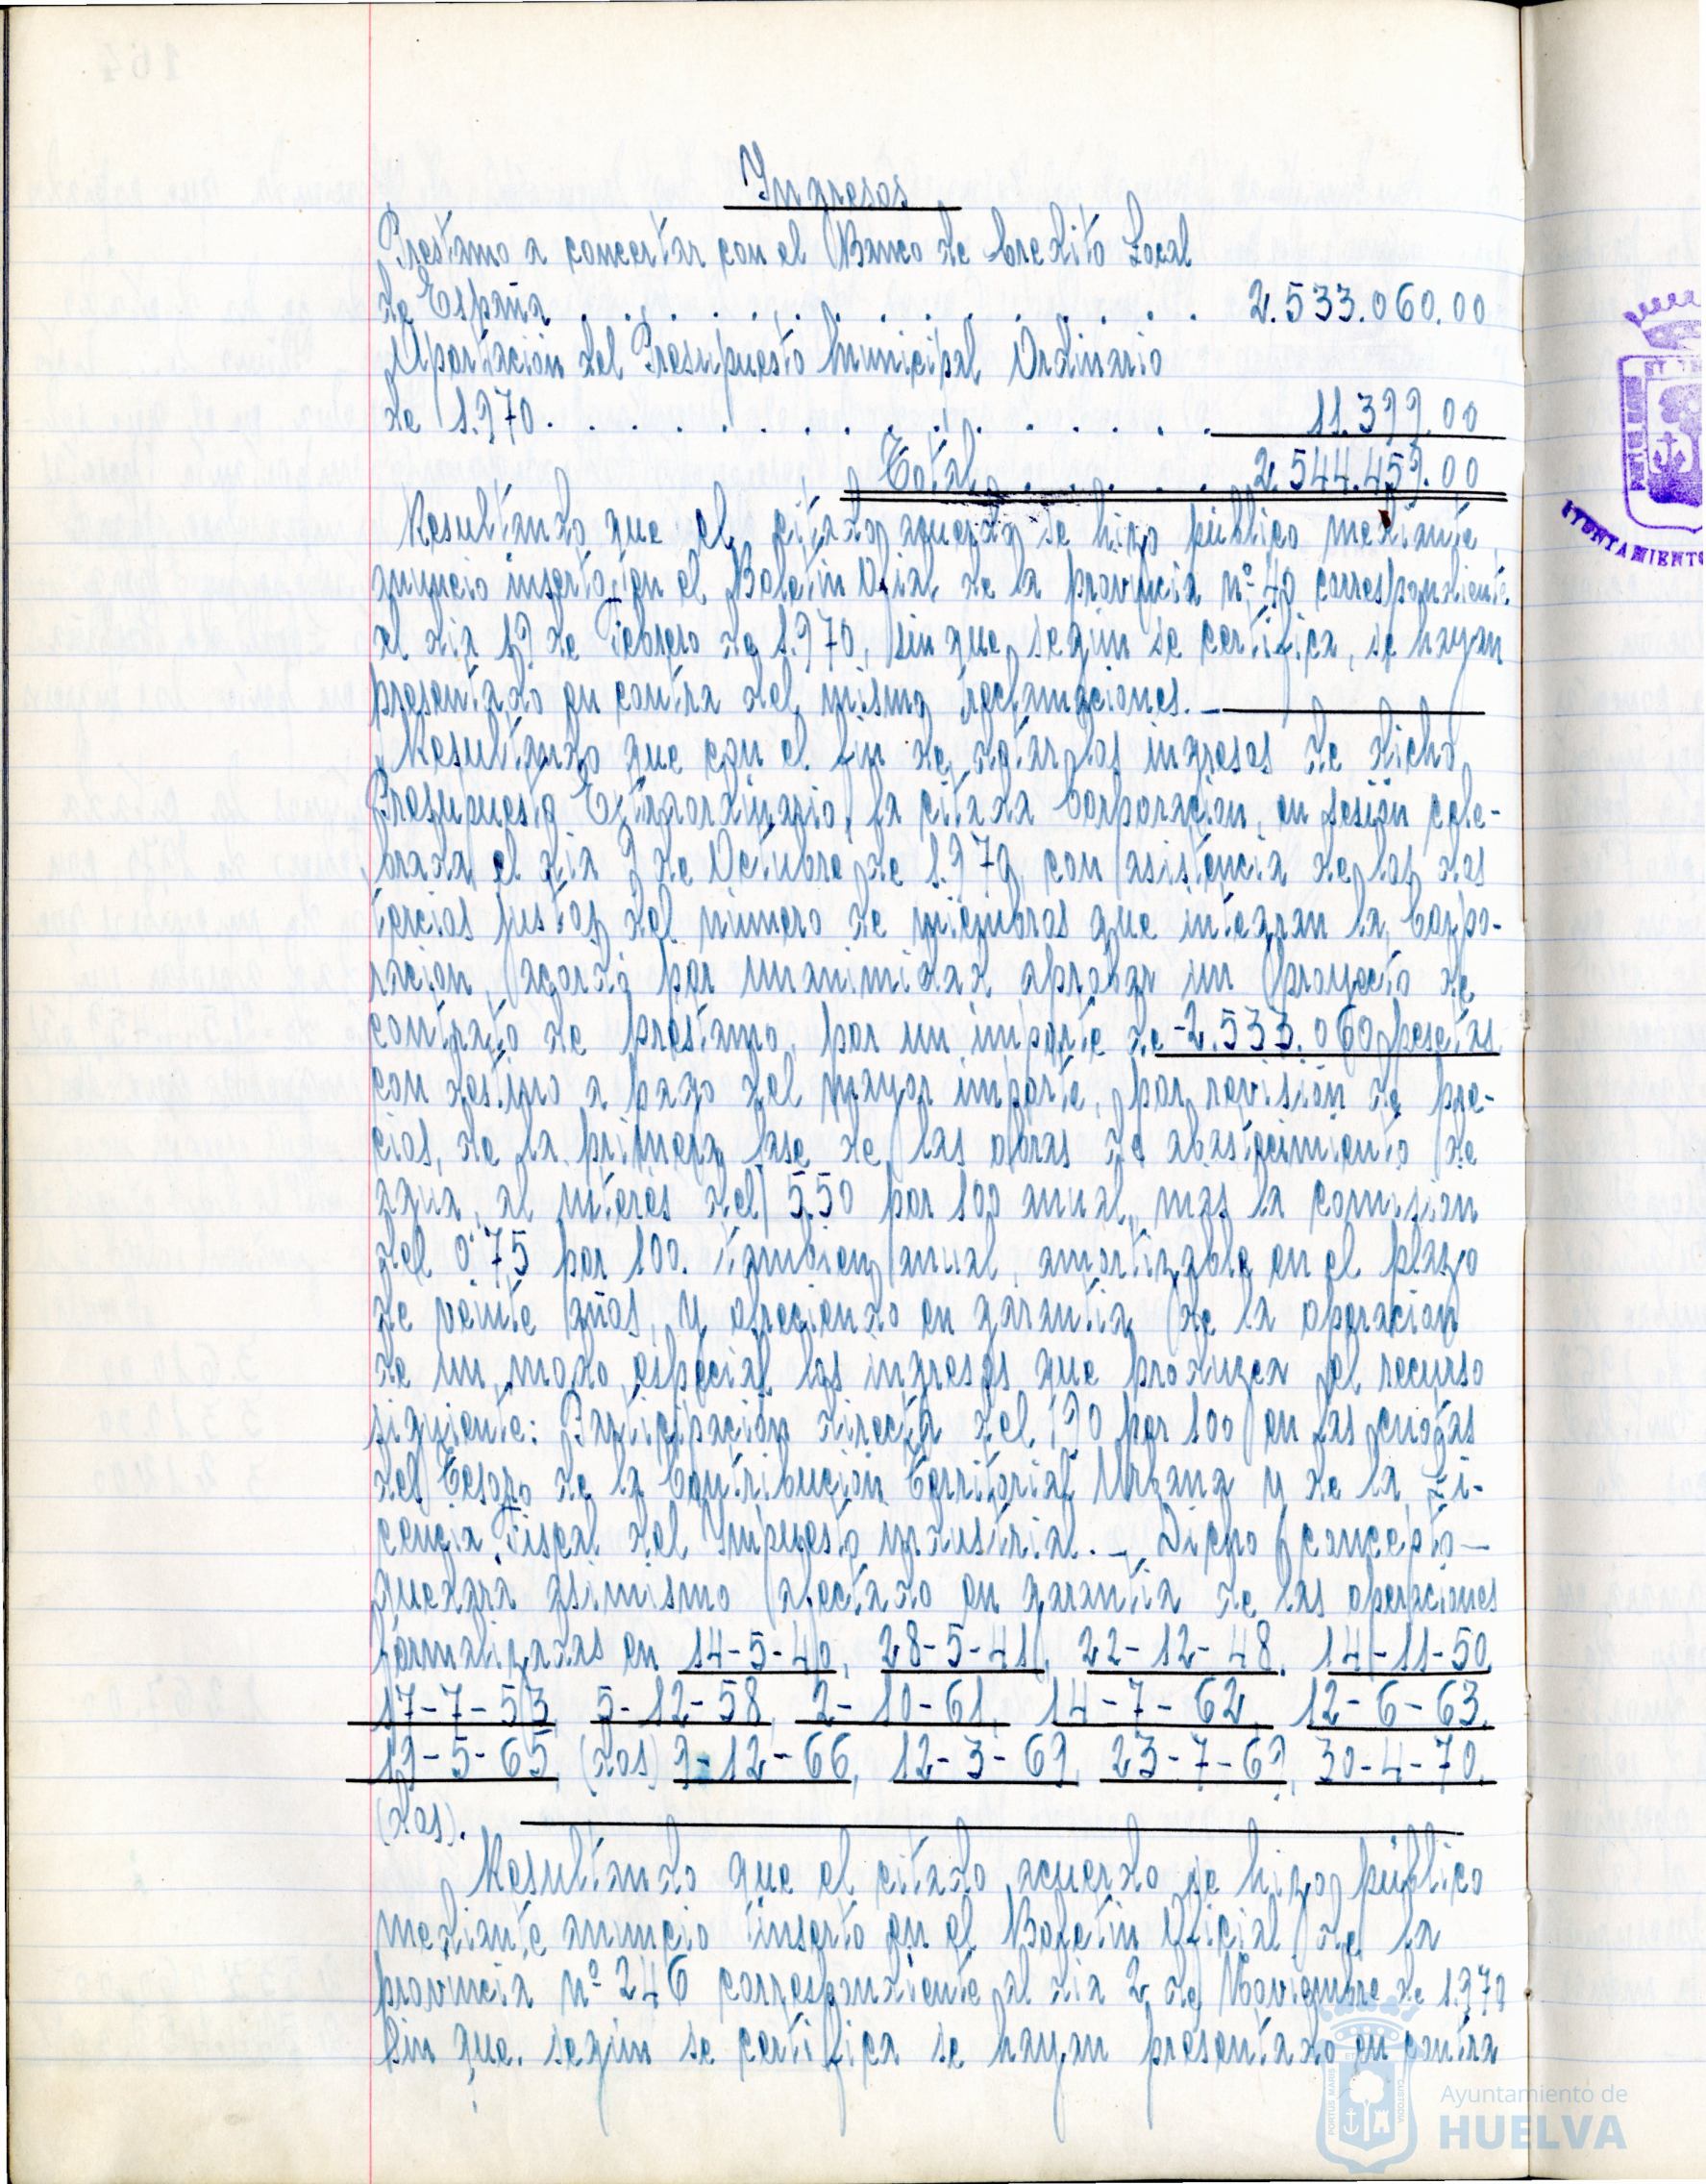 Ingresos
Prestamo a concertar con el Banco de Credito Local
de España . . . . . . . . . . . . . . 2.533.060.00
Aportación del Presupuesto Municipal Ordinario
de 1.970. . . . . . . . . . . . . . 11.399.00
Total . . . . . . 2.544.459.00
Resultando que el citado acuerdo se hizo público mediante
anuncio inserto en el Boletin Oficial de la provincia nº 40 correspondiente
al dia 19 de Febrero de 1.970, sin que, según se certifica, se hayan
presentado en contra del mismo reclamaciones. —
Resultando que con el fin de dotar los ingresos de dicho
Presupuesto Extraordinario, la citada Corporación, en sesión cele-
brada el dia 9 de Octubre de 1.970, con asistencia de los dos
tercios justos del número de miembros que integran la Corpo-
ración, acordó por unanimidad aprobar un proyecto de
contrato de prestamo, por un importe de -2.533.060 pesetas
con destino a pago del mayor importe, por revisión de pre-
cios, de la primera fase de las obras de abastecimiento de
agua, al interés del 5.50 por 100 anual, mas la comision
del 0'75 por 100. tambien anual, amortizable en el plazo
de veinte años, y ofreciendo en garantia de la operacion
de un modo especial los ingresos que produzca el recurso
siguiente: Participación directa del 90 por 100 en las cuotas
del Tesoro de la Contribución Territorial Urbana y de la Li-
cencia Fiscal del Impuesto industrial. - Dicho concepto —
quedará asimismo afectado en garantia de las operaciones
formalizadas en 14-5-40, 28-5-41, 22-12-48, 14-11-50
17-7-53, 5-12-58, 2-10-61, 14-7-62, 12-6-63,
19-5-65, (dos) 9-12-66, 12-3-69, 23-7-69, 30-4-70,
(dos).
Resultando que el citado acuerdo se hizo público
mediante anuncio inserto en el Boletin Oficial de la
provincia nº 246 correspondiente al dia 2 de Noviembre de 1.970
sin que, según se certifica se hayan presentado en contra
Ayuntamiento de
HUELVA